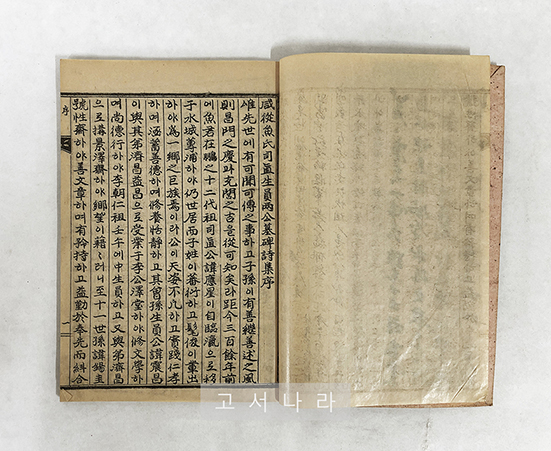 咸從魚氏司直生員兩公墓碑詩集序
雖先世에有可聞可傳之事하고子孫이有善繼善述之風
則昌門之慶과克閥之吉을從可知矣라距今三百餘年前
에魚君在鵬之十二代祖司直公諱應星이自臨瀛으로移
于水城尊浦하야仍世居而子姓이蕃衍하고髦俊이輩出
하야爲一鄕之巨族焉이라公이天姿不凡하고實踐仁孝
하며涵蓄善德하며修養恬靜하고其曾孫生員公諱震昌
이與其弟濟昌益昌으로受業于李公澤堂하야修文學하
며尙德行하야李朝仁祖壬午에中生員하고又與弟濟昌
으로搆景澤齋하야鄕望이藉〻러니至十一世孫諱錫圭
號性齋하야善文章하며有矜持하고益勤於奉先而糾合
序
一
고서나라